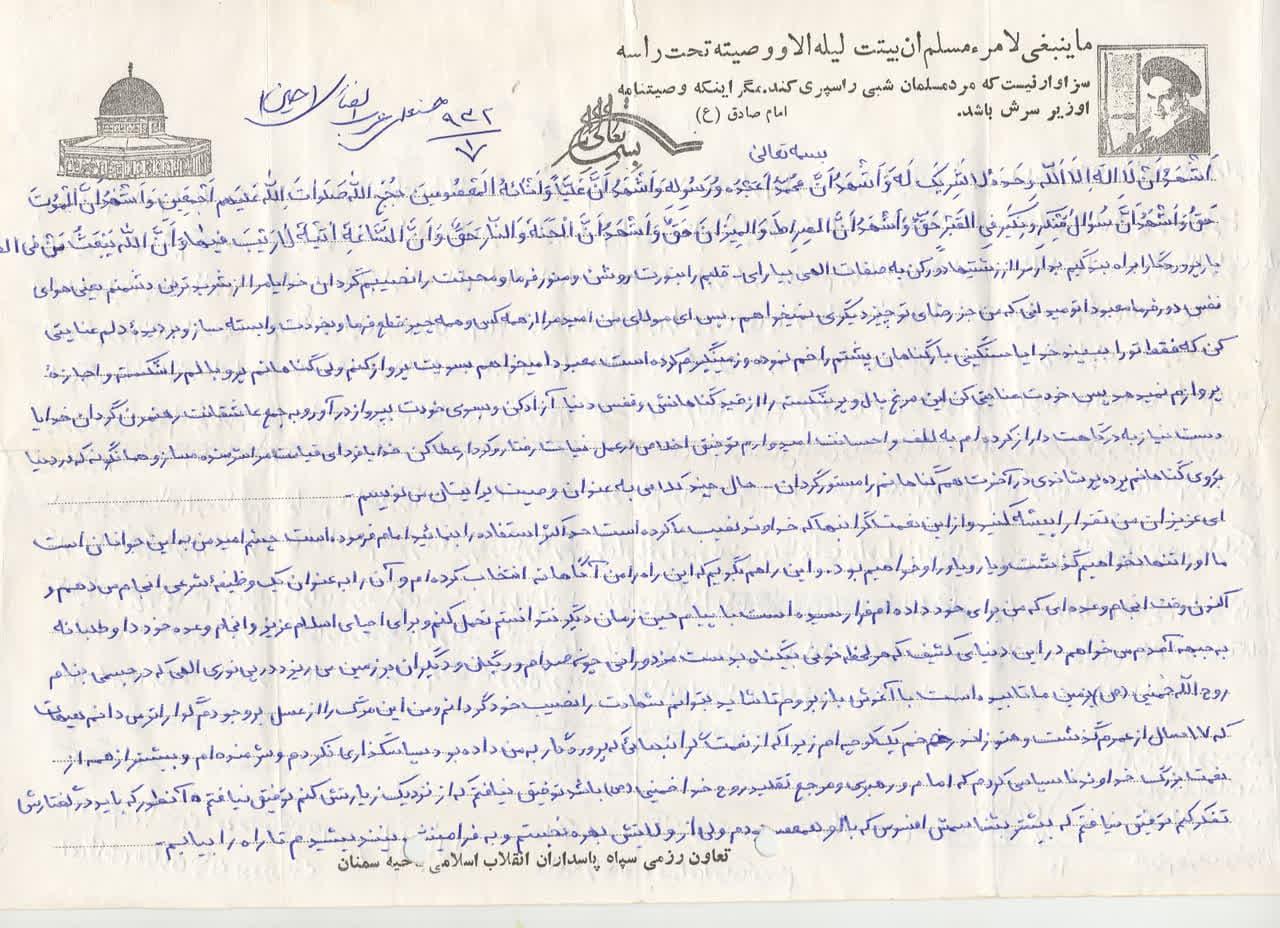 ما ینبغی لامرء مسلم ان یبیتت لیله الا و وصیته تحت راسه
سزاوار نیست که مرد مسلمان شبی را سپری کند. مگر اینکه وصیتنامه
او زیر سرش باشد. امام صادق (ع)
۹۳۲
۷
بسمه تعالی
بسمه تعالی
اَشْهَدُ اَنْ لا اِلهَ اِلاَّ اللّه وَحْدَهُ لا شَریکَ لَهُ وَ اَشْهَدُ اَنَّ مُحَمَّداً عَبْدُهُ وَ رَسُولُهُ وَ اَشْهَدُ اَنَّ عَلیّاً وَ اَبْنائَهُ الْمَعْصُومینَ حُجَجُ اللّه صَلَواتُ اللّه عَلَیْهِم اَجْمَعینَ وَ اَشْهَدُ اَنَّ الْمَوْتَ
حَقٌّ وَ اَشْهَدُ اَنَّ سُؤالَ مُنْکَرٍ وَ نَکیرٍ فِی الْقَبْرِ حَقٌّ وَ اَشْهَدُ اَنَّ الصِراطَ وَ الْمیزانَ حَقٌّ وَ اَشْهَدُ اَنَّ الْجَنَهَ وَ النّارَ حَقٌّ وَ اَنَّ السّاعَهَ اتیَهٌ لا رَیْبَ فیها وَ اَنَّ اللّه یَبْعَثُ مَنْ فی
بار پروردگارا براه بندگیم بدار مرا از زشتیها دور کن به صفات الهی بیارای. قلبم را بنورت روشن و منور فرما و محبتت را نصیبم گردان خدایا مرا از شدیدترین دشمنم یعنی هوای
نفس دور فرما معبودا تو میدانی که من جز رضای تو چیز دیگری نمیخواهم. پس ای مولای من امید مرا از همه کس و همه چیز قطع فرما و بخودت وابسته ساز و بر دیدهٔ دلم عنایتی
کن که فقط تو را ببیند خدایا سنگینی بار گناهان پشتم را خم نموده و زمینگیرم کرده است معبودا میخواهم بسویت پرواز کنم ولی گناهانم پر و بالم را شکسته و اجازهٔ
پروازم نمیدهد پس خودت عنایتی کن این مرغ بال و پر شکسته را از قید گناهانش و قفس دنیا آزاد کن و بسوی خودت بپرواز در آور و به جمع عاشقانت رهنمون گردان خدایا
دست نیاز به درگاهت دراز کرده ام به لطف و احسانت امیدوارم توفیق اخلاص در عمل نیات رفتار و کردار عطا کن. خدایا فردای قیامت مرا شرمنده مساز و همانگونه که در دنیا
بر روی گناهانم پرده پوشاندی در آخرت هم گناهانم را مستور گردان - حال چند کلامی به عنوان وصیت برایتان می نویسم -
ای عزیزان من تقوا را پیشه کنید و از این نعمت گرانبها که خداوند نصیب ما کرده است حداکثر استفاده را بنمائید امام فرموده است. چشم امید من به این جوانان است
ما او را تنها نخواهیم گذاشت و یار و یاور او خواهیم بود. و این را هم بگویم که این راه را من آگاهانه انتخاب کرده ام و آن را به عنوان یک وظیفهٔ شرعی انجام می دهم و
اکنون وقت انجام وعده ای که من برای خود داده ام فرا رسیده است با پیام حسین زمان دیگر نتوانستم تحمل کنم و برای احیای اسلام عزیز و انجام وعده خود داوطلبانه
به جبهه آمدم می خواهم در این دنیای کثیف که هر لحظه خونی بیگناه بدست مزدورانی چون صدام و ریگان و دیگران بر زمین می ریزد در پی نوری الهی که در جسمی بنام
روح الله خمینی (ص) بزمین ما تابیده است با آغوش باز بروم تا شاید بتوانم شهادت را نصیب خود گردانم و من این مرگ را از عسل بر وجودم گواراتر می دانم
که ۱۷ سال از عمرم گذشت و هنوز اندر خم یک کوچه ام زیرا که از نعمتهای گرانبهایی که پروردگار به من داده بود سپاسگذاری نکردم و شرمنده ام و بیشتر از همه از
نعمت بزرگ خداوند ناسپاسی کردم که امام و رهبری و مرجع تقلید روح خدا خمینی (ص) باشد توفیق نیافتم که از نزدیک زیارتش کنم توفیق نیافتم آنطور که باید در گفتارش
تفکر کنم توفیق نیافتم که بیشتر بشناسمش افسوس که با او بودم ولی از ولایتش بهره نجستم و به فرامینش نیندیشیدم تا راه را بیابم.
تعاون رزمی سپاه پاسداران انقلاب اسلامی سمنان